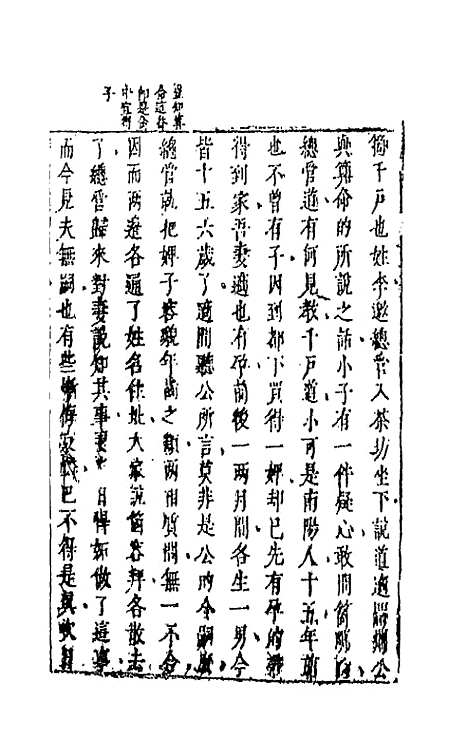 箇千戶也姓李邀總管入茶坊坐下說道適聞公
與算命的所說之話小子有一件疑心敢問箇明白
總管道有何見教千戶道小可是南陽人十五年前
也不曾有子因到都下買得一婢却已先有孕的帶
得到家吾妻適也有孕前後一兩月間各生一男今
皆十五六歲了適間聽公所言莫非是公的令嗣麼
總管就把婢子容貌年齒之類兩相質問無一不合
因而兩邊各通了姓名住址大家說箇容拜各散去
了總管歸來對妻說知其事妻當日悍妬做了這事
而今見夫無嗣也有些慚悔哀巴不得是真次日